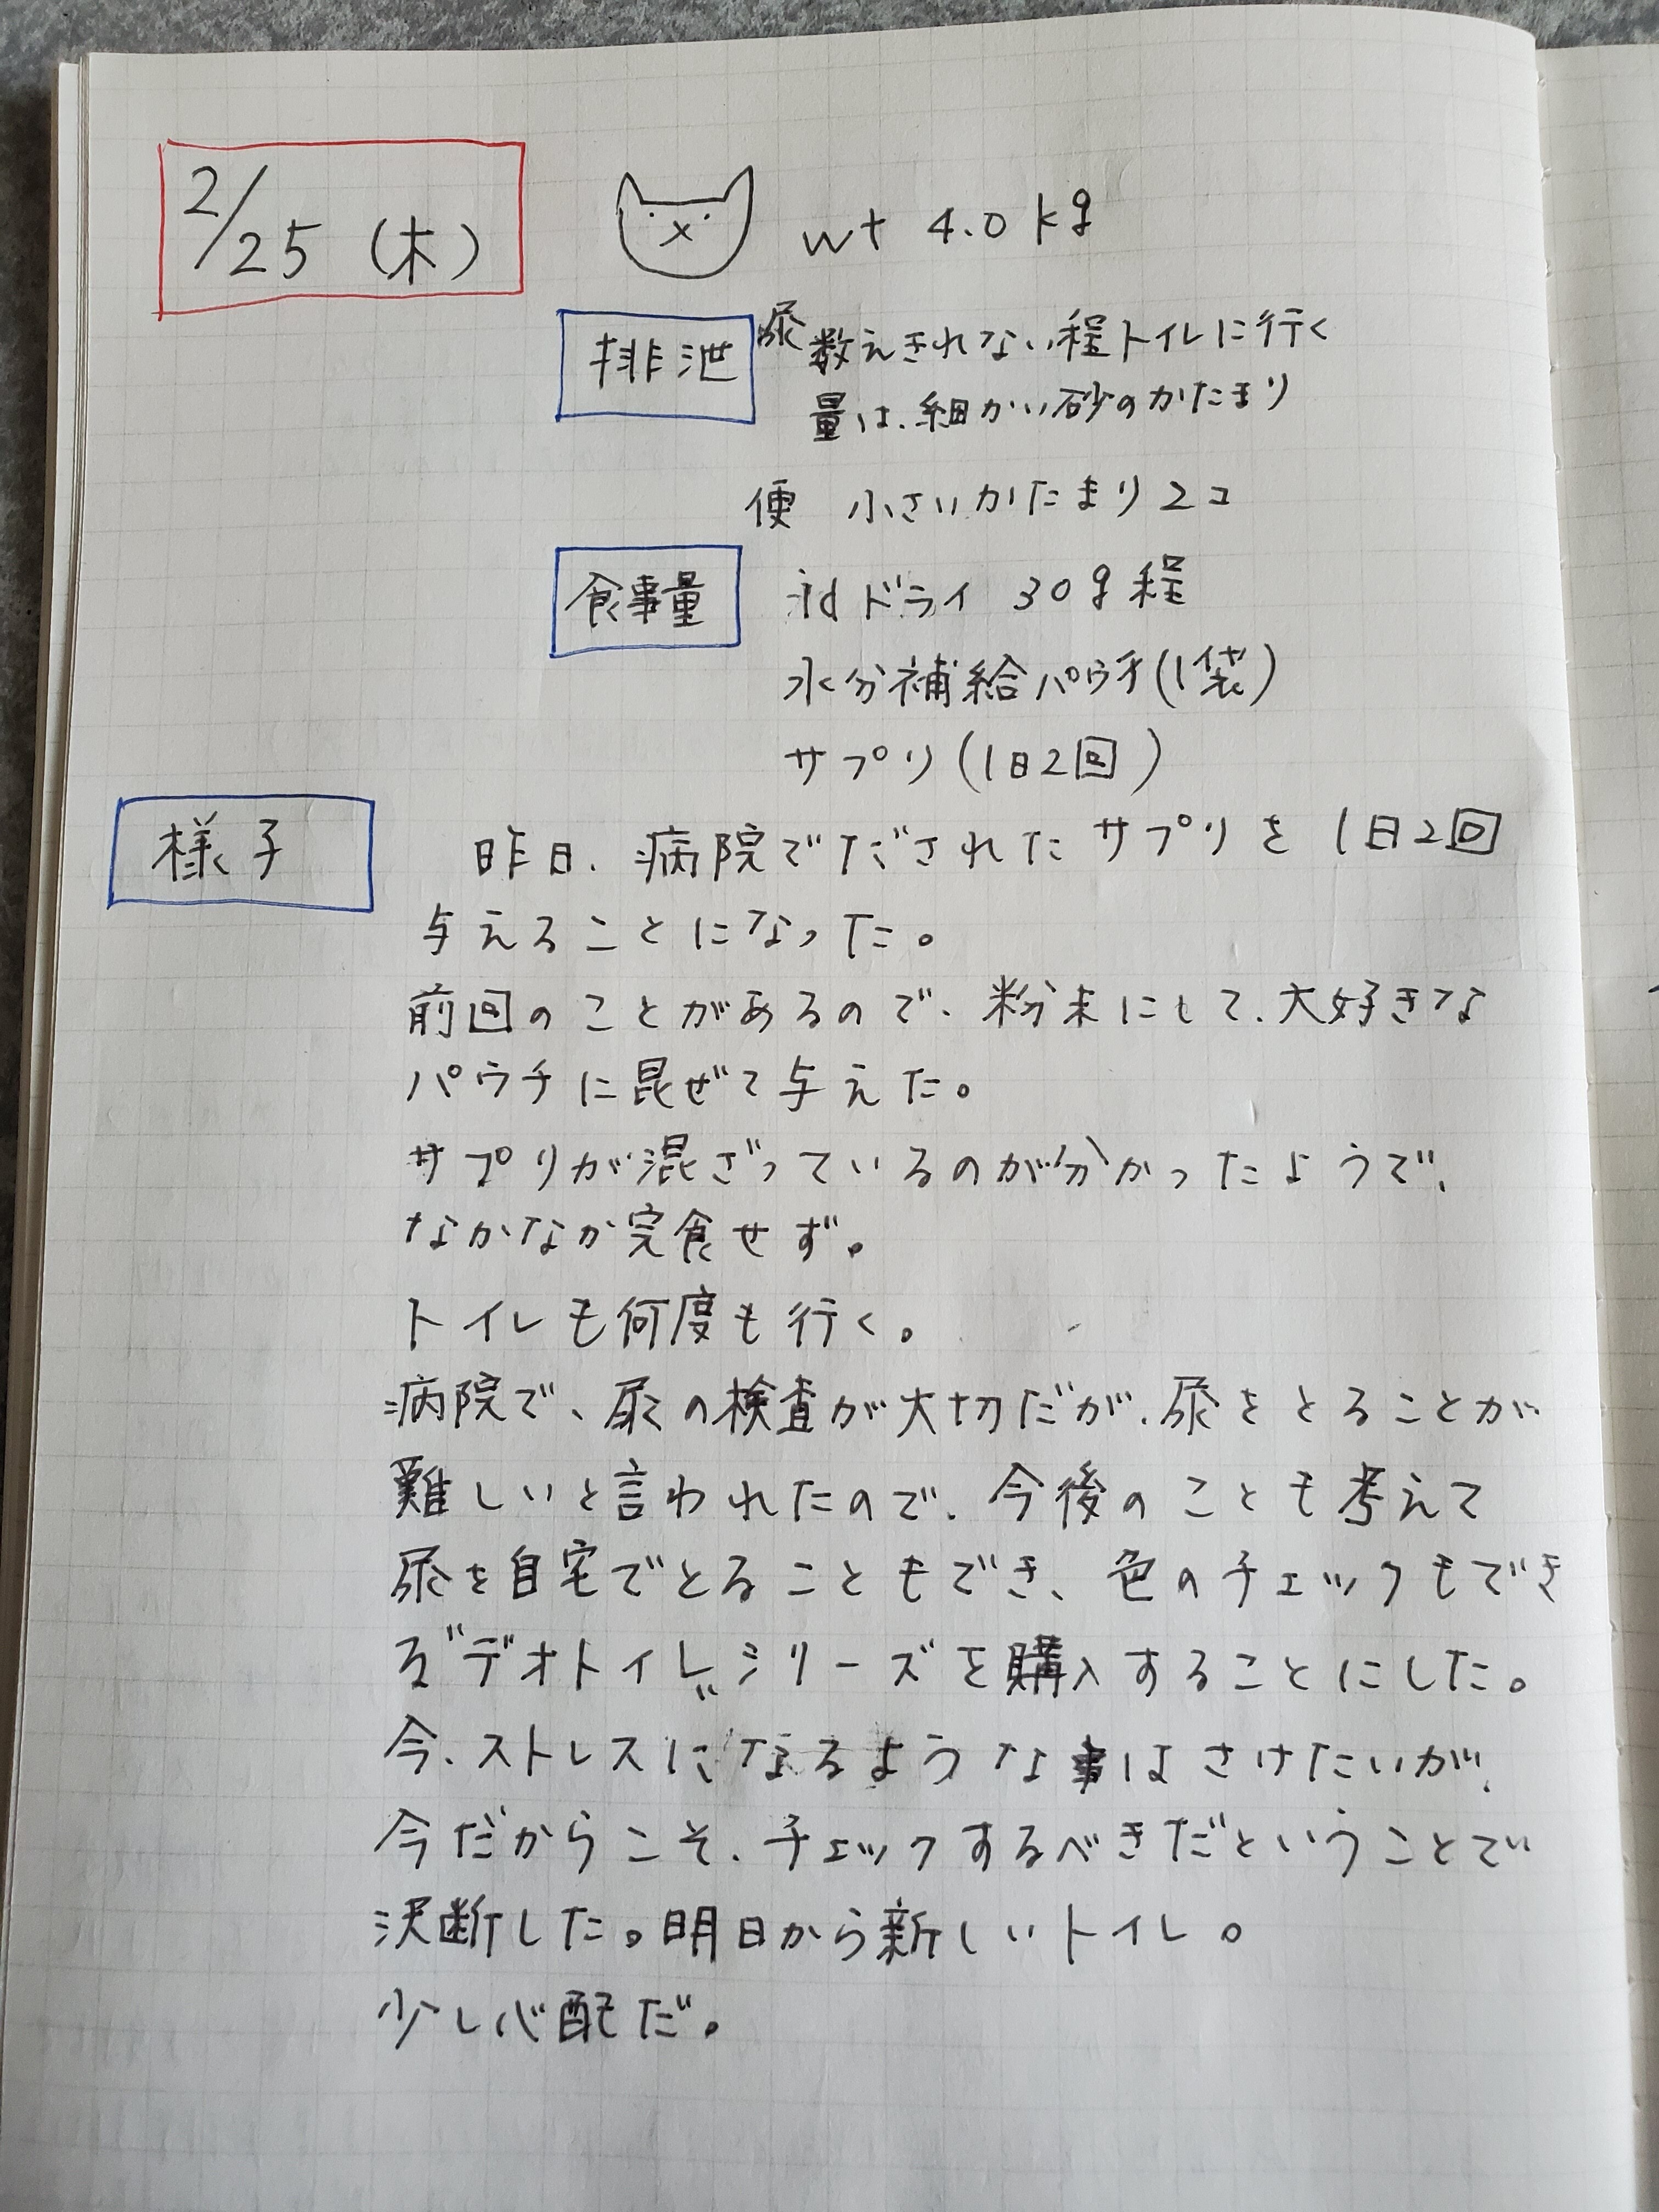 2/25 (木)
wt 4.0kg
排泄
尿 数えきれない程トイレに行く
量は、細かい砂のかたまり
便 小さいかたまり2コ
食事量
idドライ 30g程
水分補給パウチ(1袋)
サプリ(1日2回)
様子
昨日、病院でだされたサプリを1日2回
与えることになった。
前回のことがあるので、粉末にして、大好きな
パウチに混ぜて与えた。
サプリが混ざっているのが分かったようで、
なかなか完食せず。
トイレも何度も行く。
病院で、尿の検査が大切だが、尿をとることが
難しいと言われたので、今後のことも考えて
尿を自宅でとることもでき、色のチェックもでき
る"デオトイレ"シリーズを購入することにした。
今、ストレスになるような事はさけたいが、
今だからこそ、チェックするべきだということで
決断した。明日から新しいトイレ。
少し心配だ。